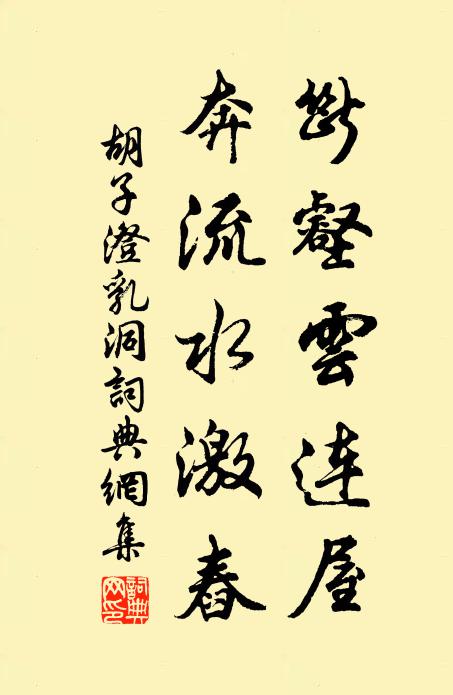 斷壑雲連屋
奔流水激舂
胡子澄乳洞詞典網集
詞典网印